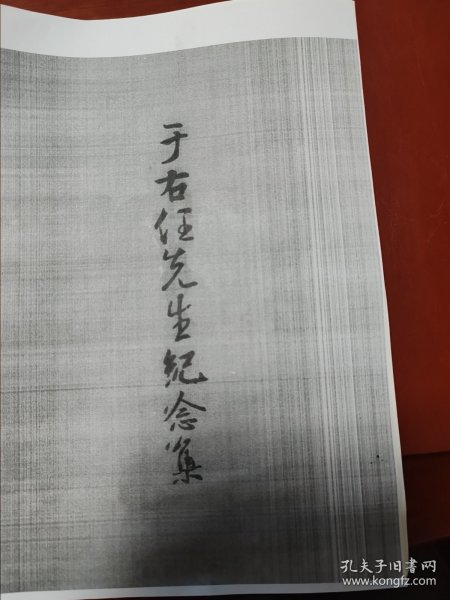 于右任先生纪念集
孔夫子旧书网
www.kongfz.com